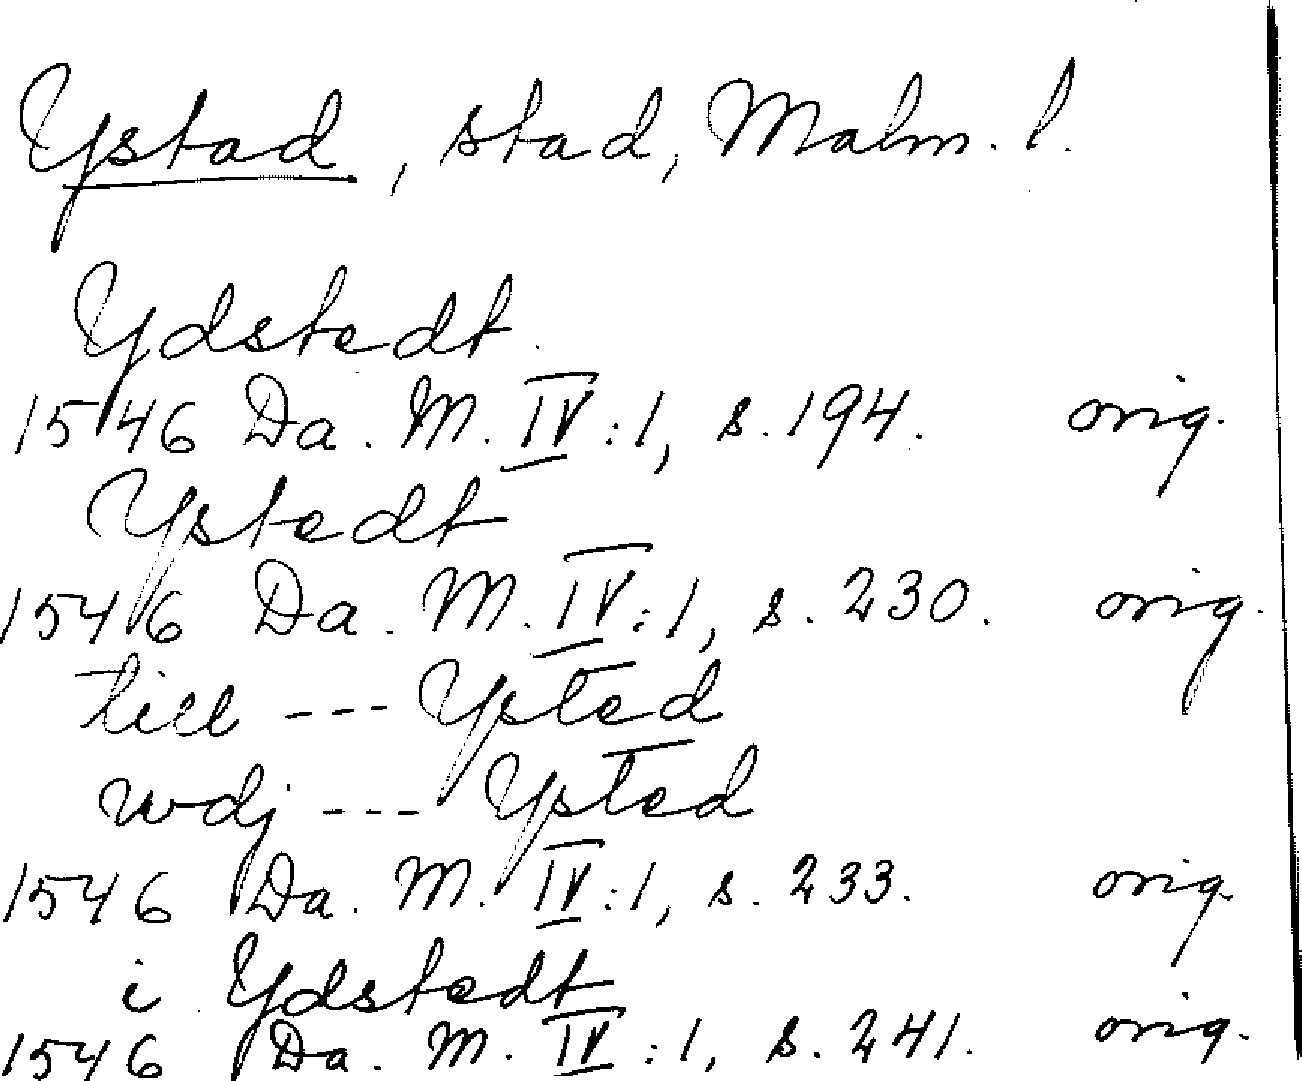 Ystad, stad, Malm. l.
Ydstedt.
1546 Da. M. IV:1, s. 194. orig.
Ystedt
1546 Da. M. IV:1, s. 230. orig.
till --- Ysted
wdj --- Ysted
1546 Da. M. IV:1, s. 233. orig.
i Ydstedt
1546 Da. M. IV:1, s. 241. orig.